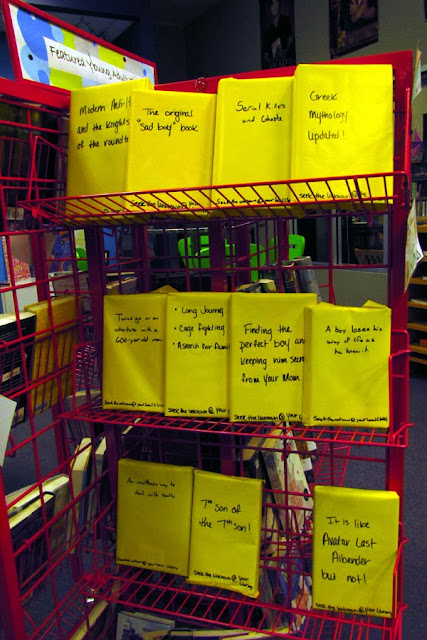 Featured Young Adult
Modern Arthur
and the Knights
of the round
The original
"sad boy" book
Serial Killers
and Ghosts
Greek
Mythology
Updated!
Seek the Unknown @ your
Seek the Unknown @ your
Seek the Unknown @ your
Twins go on an
adventure with a
600-year old man
Seek the Unknown @ your
• Long Journey
• Cage fighting
• A search for
Seek the Unknown @ your
Finding the
perfect boy and
keeping him secret
from your Mom
Seek the Unknown @ your
A boy loses his
way of life as
he knows it
Seek the Unknown @ your
way to
deal with
Seek the Unknown @ your library
7th Son of
the 7th Son!
Seek the Unknown @ your
Library
It is like
Avatar Last
Airbender
but not!
Seek the Unknown @ your library